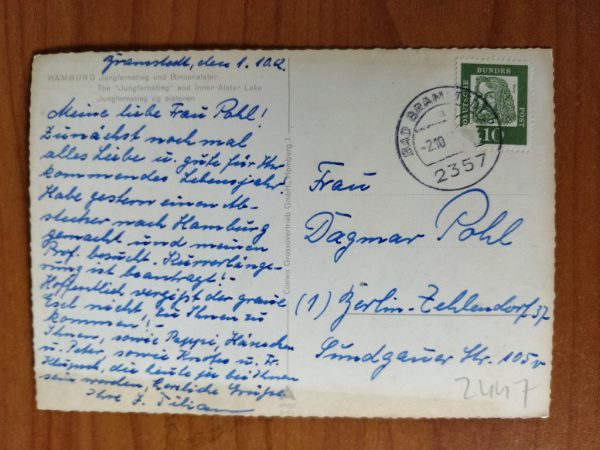 Bramstedt, den 1.10.62.
HAMBURG Jungfernstieg und Binnenalster
The "Jungfernstieg" and Inner Alster Lake
Jungfernstieg og alsteren
Meine liebe Frau Pohl!
Zunächst noch mal
alles Liebe u. gute für Ihr
kommendes Lebensjahr!
Habe gestern einen Ab-
stecher nach Hamburg
gemacht und meinen
Prof. besucht. Kurverlänge-
rung ist beantragt! -
Hoffentlich vergißt der graue
Esel nicht, zu Ihnen zu
kommen! -
Ihnen, sowie Peppi, Hänschen
u. Peter, sowie u. Fr.
die heute ja bei Ihnen
sein werden, herzliche Grüße
Ihre J. Tilian
DEUTSCHE BUNDES POST
10
BAD BRAM
-2.10
2357
Frau
Dagmar Pohl
(1) Berlin-Zehlendorf 37
Sundgauer Str. 105
2447